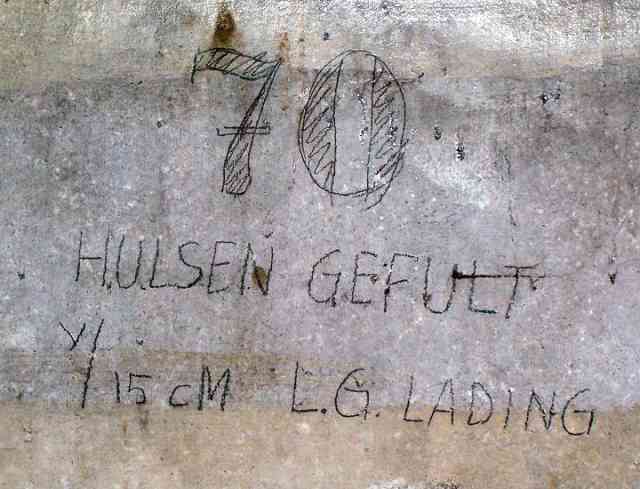 70
HULSEN GEFULT
V/15 cM L.G. LADING